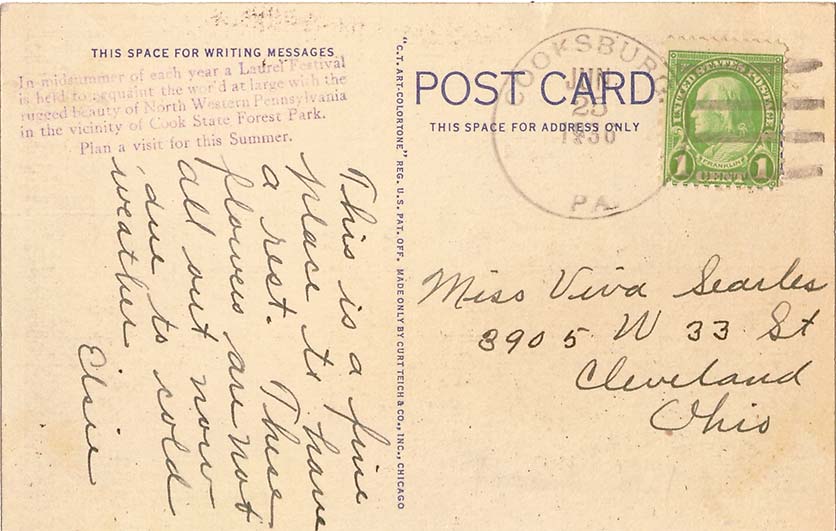 THIS SPACE FOR WRITING MESSAGES
In midsummer of each year a Laurel Festival
is held to acquaint the world at large with the
rugged beauty of North Western Pennsylvania
in the vicinity of Cook State Forest Park.
Plan a visit for this Summer.
This is a fine
place to have
a rest. These
flowers are not
all out now
due to cold
weather
Elsie
"C.T. ART-COLORTONE" REG. U.S. PAT. OFF. MADE ONLY BY CURT TEICH & CO., INC., CHICAGO
POST CARD
THIS SPACE FOR ADDRESS ONLY
COOKSBURG
JUN
1936
PA.
UNITED STATES POSTAGE
FRANKLIN
1 CENT 1
Miss Viva Searles
3905 W 33 St
Cleveland
Ohio